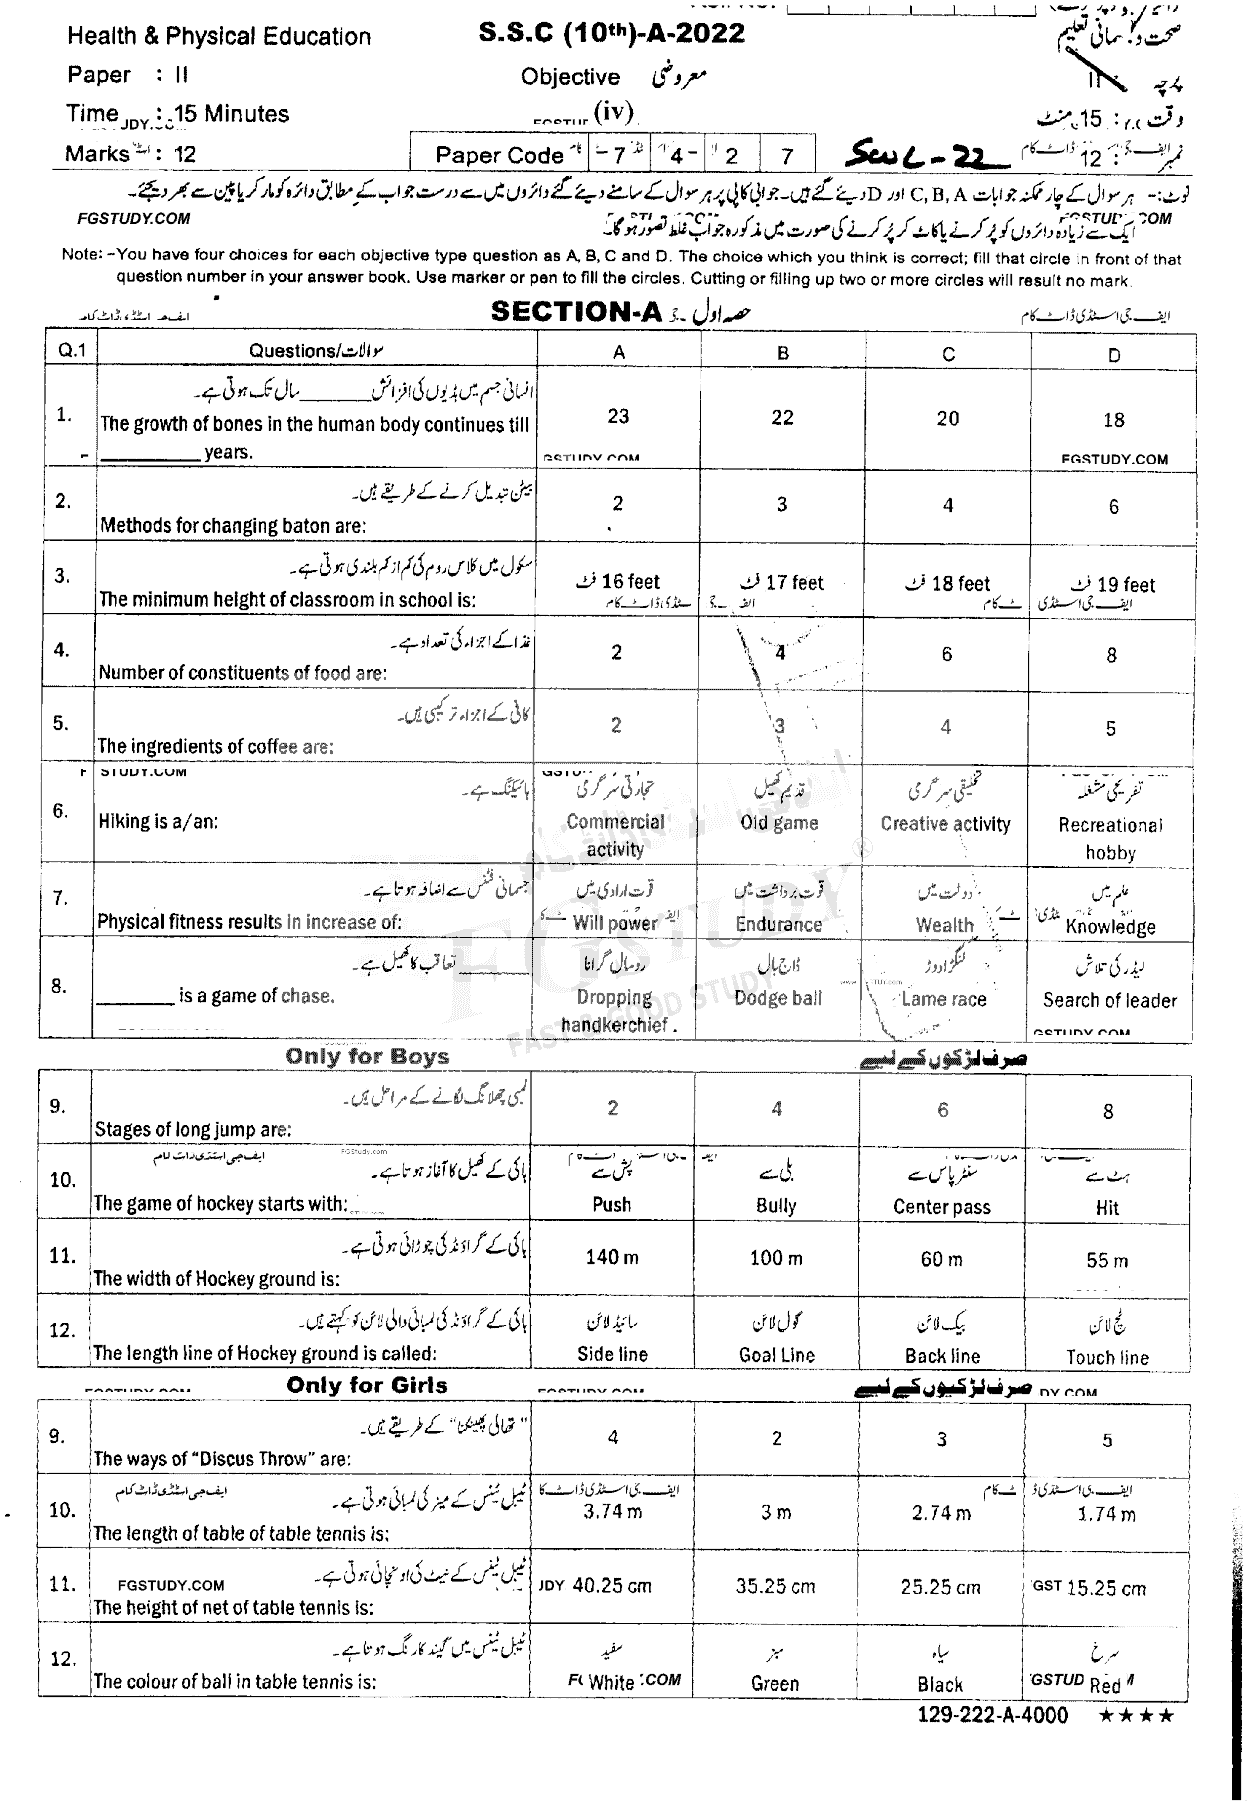 Health & Physical Education
S.S.C (10th)-A-2022
صحت و جسمانی تعلیم
Paper : II
Objective معروضی
پرچہ II
Time : 15 Minutes
(iv)
وقت : 15 منٹ
Marks : 12
Paper Code 7 4 2 7
نمبر : 12
نوٹ:- ہر سوال کے چار ممکنہ جوابات C, B, A اور D دیئے گئے ہیں۔ جوابی کاپی پر ہر سوال کے سامنے دیئے گئے دائروں میں سے درست جواب کے مطابق دائرہ کو مارکر یا پین سے بھر دیجئے۔
FGSTUDY.COM
ایک سے زیادہ دائروں کو پُر کرنے یا کاٹ کر پُر کرنے کی صورت میں مذکورہ جواب غلط تصور ہوگا۔
Note: -You have four choices for each objective type question as A, B, C and D. The choice which you think is correct; fill that circle in front of that
question number in your answer book. Use marker or pen to fill the circles. Cutting or filling up two or more circles will result no mark.
SECTION-A حصہ اول
ایف جی اسٹڈی ڈاٹ کام
Q.1 Questions/سوالات A B C D
انسانی جسم میں ہڈیوں کی افزائش ______ سال تک ہوتی ہے۔
1. The growth of bones in the human body continues till 23 22 20 18
__________ years.
FGSTUDY.COM
بیٹن تبدیل کرنے کے طریقے ہیں۔
2. Methods for changing baton are: 2 3 4 6
سکول میں کلاس روم کی کم از کم بلندی ہوتی ہے۔
3. The minimum height of classroom in school is: 16 feet فٹ 17 feet فٹ 18 feet فٹ 19 feet فٹ
غذا کے اجزاء کی تعداد ہے۔
4. Number of constituents of food are: 2 4 6 8
کافی کے اجزاء ترکیبی ہیں۔
5. The ingredients of coffee are: 2 3 4 5
ہائیکنگ ہے۔ تجارتی سرگرمی قدیم کھیل تخلیقی سرگرمی تفریحی مشغلہ
6. Hiking is a/an: Commercial activity Old game Creative activity Recreational hobby
جسمانی فٹنس سے اضافہ ہوتا ہے۔ قوت ارادی میں قوت برداشت میں دولت میں علم میں
7. Physical fitness results in increase of: Will power Endurance Wealth Knowledge
______ تعاقب کا کھیل ہے۔ رومال گرانا ڈاج بال لنگڑا دوڑ لیڈر کی تلاش
8. ________ is a game of chase. Dropping handkerchief. Dodge ball Lame race Search of leader
FGSTUDY
FAST & GOOD STUDY
Only for Boys صرف لڑکوں کے لیے
لمبی چھلانگ لگانے کے مراحل ہیں۔
9. Stages of long jump are: 2 4 6 8
FGStudy.com
ہاکی کے کھیل کا آغاز ہوتا ہے۔ پش سے بلی سے سنٹر پاس سے ہٹ سے
10. The game of hockey starts with: Push Bully Center pass Hit
ہاکی کے گراؤنڈ کی چوڑائی ہوتی ہے۔
11. The width of Hockey ground is: 140 m 100 m 60 m 55 m
ہاکی کے گراؤنڈ کی لمبائی والی لائن کو کہتے ہیں۔ سائیڈ لائن گول لائن بیک لائن ٹچ لائن
12. The length line of Hockey ground is called: Side line Goal Line Back line Touch line
Only for Girls صرف لڑکیوں کے لیے
"تھالی پھینکنا" کے طریقے ہیں۔
9. The ways of "Discus Throw" are: 4 2 3 5
ٹیبل ٹینس کے میز کی لمبائی ہوتی ہے۔
ایف جی اسٹڈی ڈاٹ کام
10. The length of table of table tennis is: 3.74 m 3 m 2.74 m 1.74 m
ٹیبل ٹینس کے نیٹ کی اونچائی ہوتی ہے۔
FGSTUDY.COM
11. The height of net of table tennis is: 40.25 cm 35.25 cm 25.25 cm 15.25 cm
ٹیبل ٹینس میں گیند کا رنگ ہوتا ہے۔ سفید سبز سیاہ سرخ
12. The colour of ball in table tennis is: White Green Black Red
129-222-A-4000 ★★★★